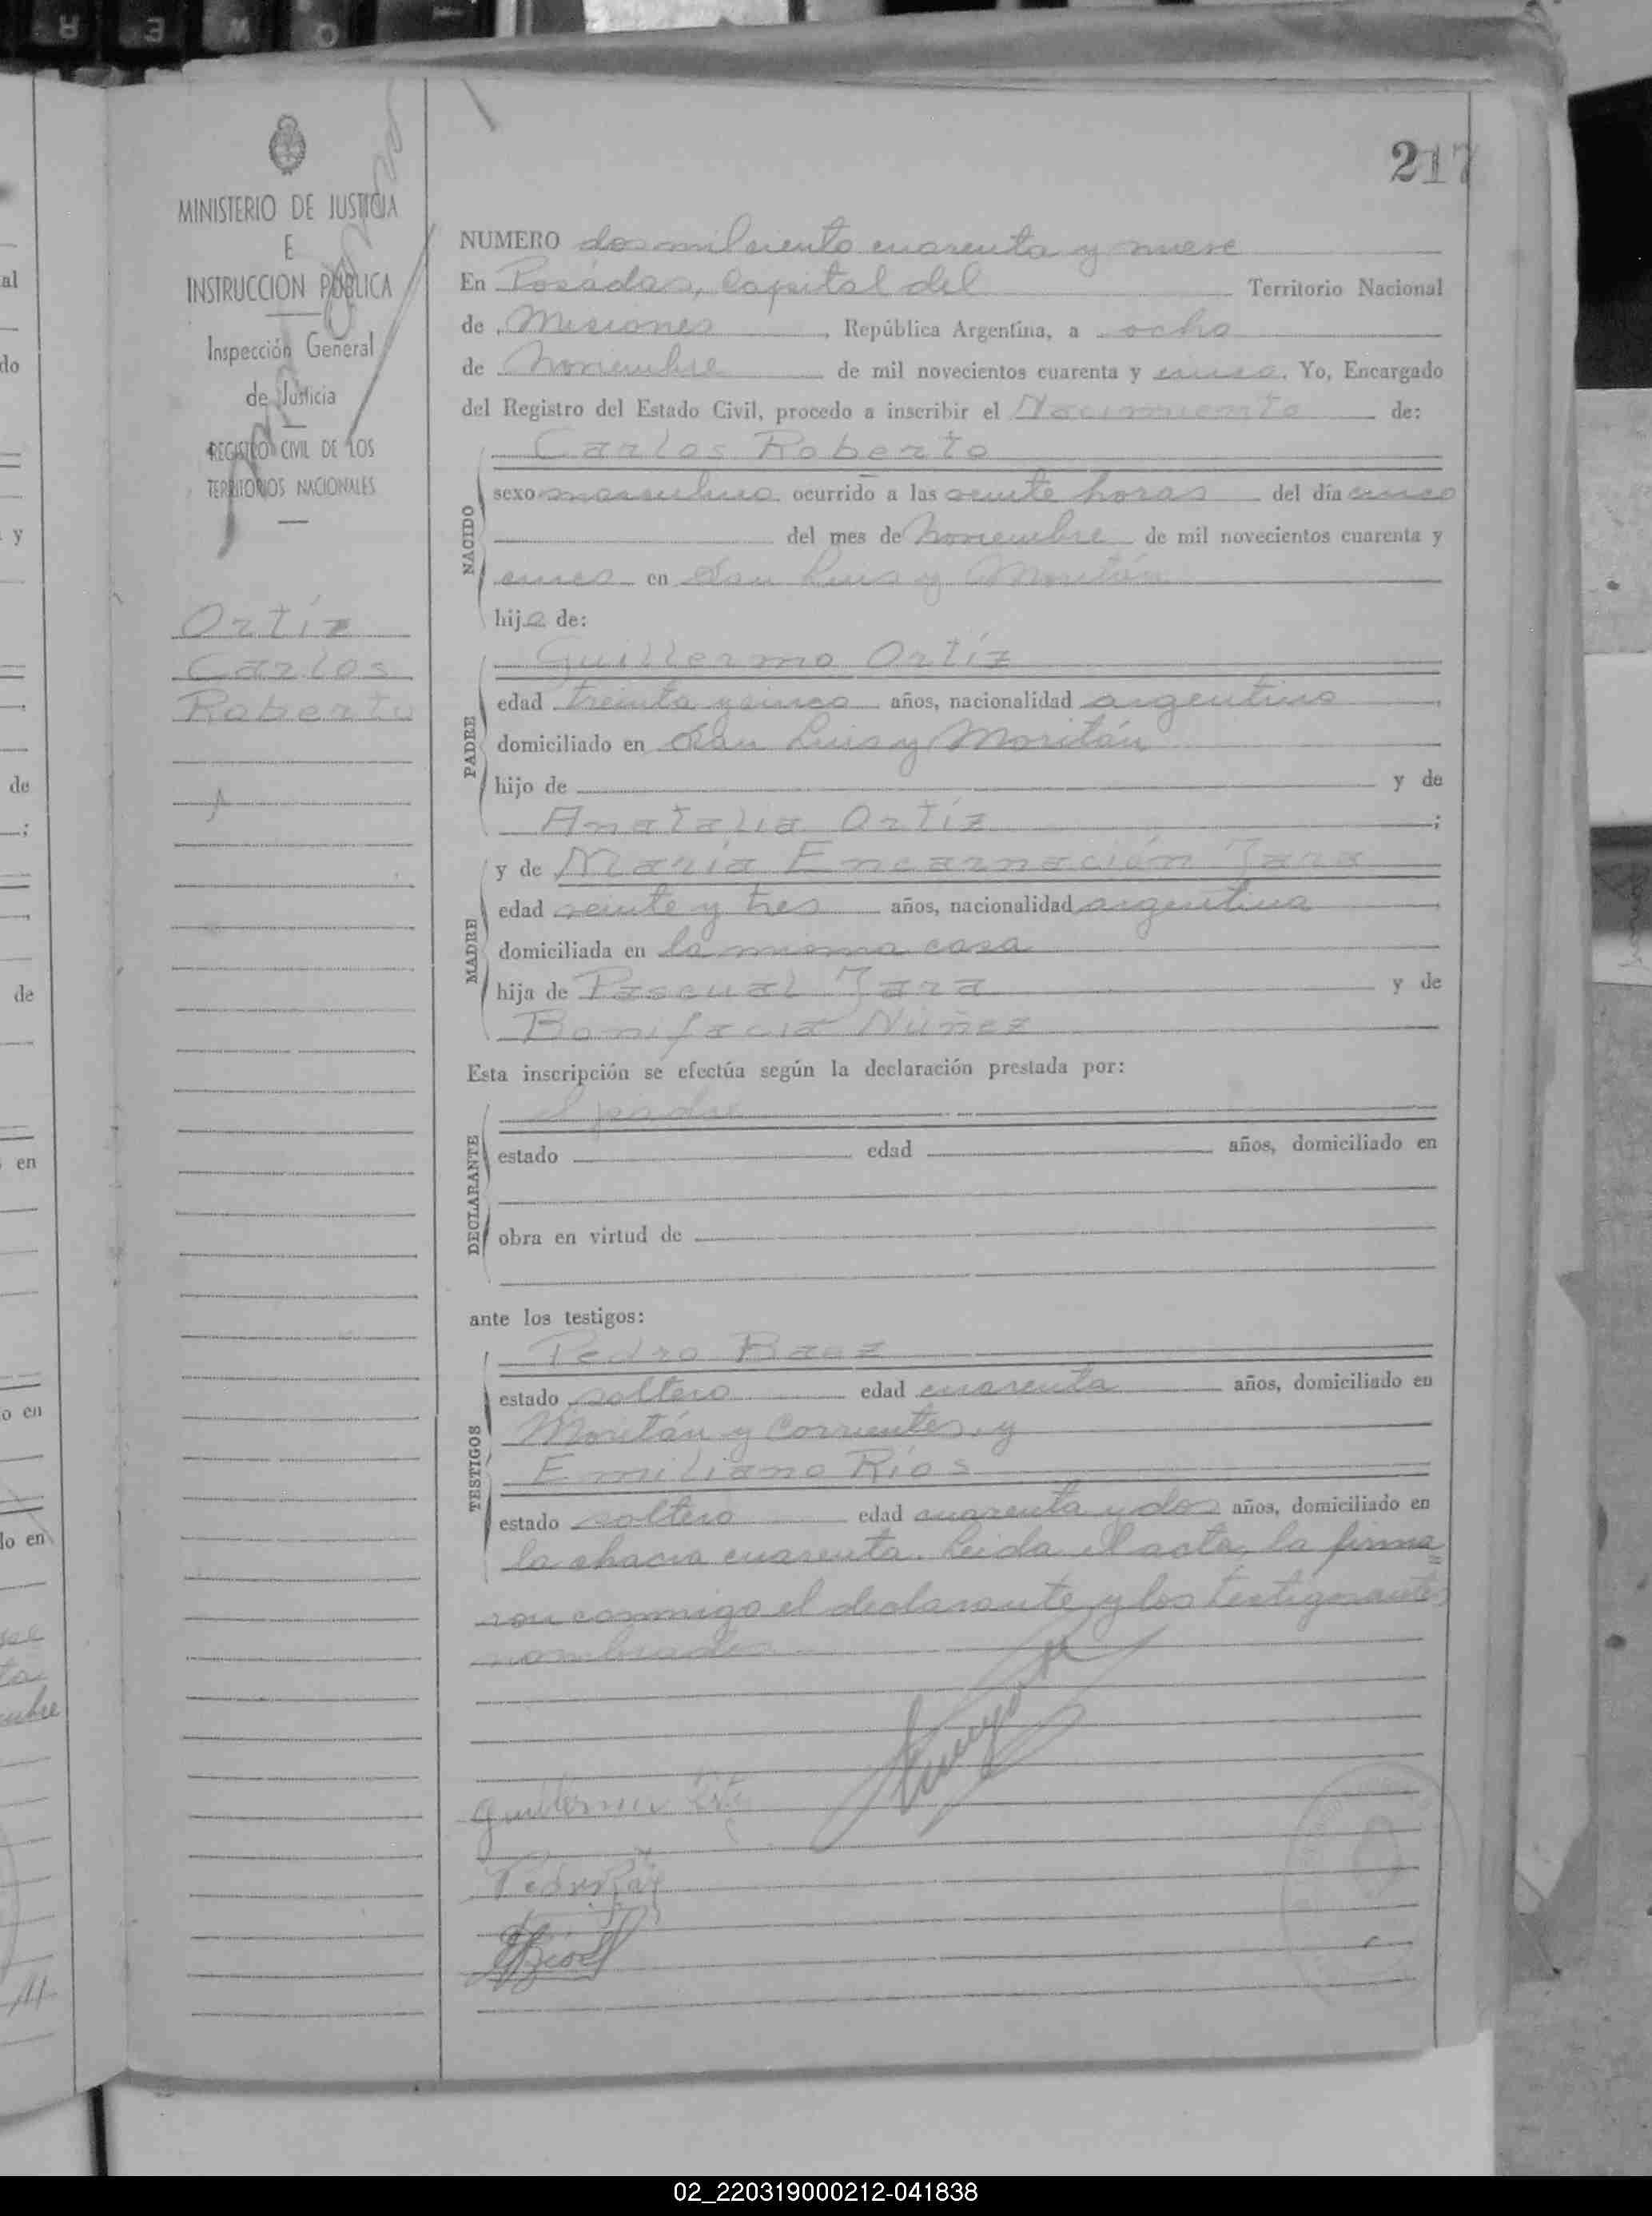 217
MINISTERIO DE JUSTICIA
E
INSTRUCCION PUBLICA
Inspección General
de Justicia
REGISTRO CIVIL DE LOS
TERRITORIOS NACIONALES
Ortíz
Carlos
Roberto
NUMERO dos mil ciento cuarenta y nueve
En Posadas, capital del Territorio Nacional
de Misiones, República Argentina, a ocho
de Noviembre de mil novecientos cuarenta y cinco. Yo, Encargado
del Registro del Estado Civil, procedo a inscribir el Nacimiento de:
NACIDO
Carlos Roberto
sexo masculino ocurrido a las veinte horas del día cinco
del mes de Noviembre de mil novecientos cuarenta y
cinco en San Luis y Moritán
hijo de:
PADRE
Guillermo Ortíz
edad treinta y cinco años, nacionalidad argentino
domiciliado en San Luis y Moritán
hijo de y de
Anatalia Ortíz;
MADRE
y de María Encarnación Jara
edad veinte y tres años, nacionalidad argentina
domiciliada en la misma casa
hija de Pascual Jara y de
Bonifacia Núñez
Esta inscripción se efectúa según la declaración prestada por:
DECLARANTE
el padre
estado edad años, domiciliado en
obra en virtud de
ante los testigos:
TESTIGOS
Pedro Baez
estado soltero edad cuarenta años, domiciliado en
Moritán y Corrientes, y
Emiliano Ríos
estado soltero edad cuarenta y dos años, domiciliado en
la chacra cuarenta. Leida el acta, la firma=
ron conmigo el declarante y los testigos antes
nombrados
Guillermo Ortiz
02_220319000212-041838